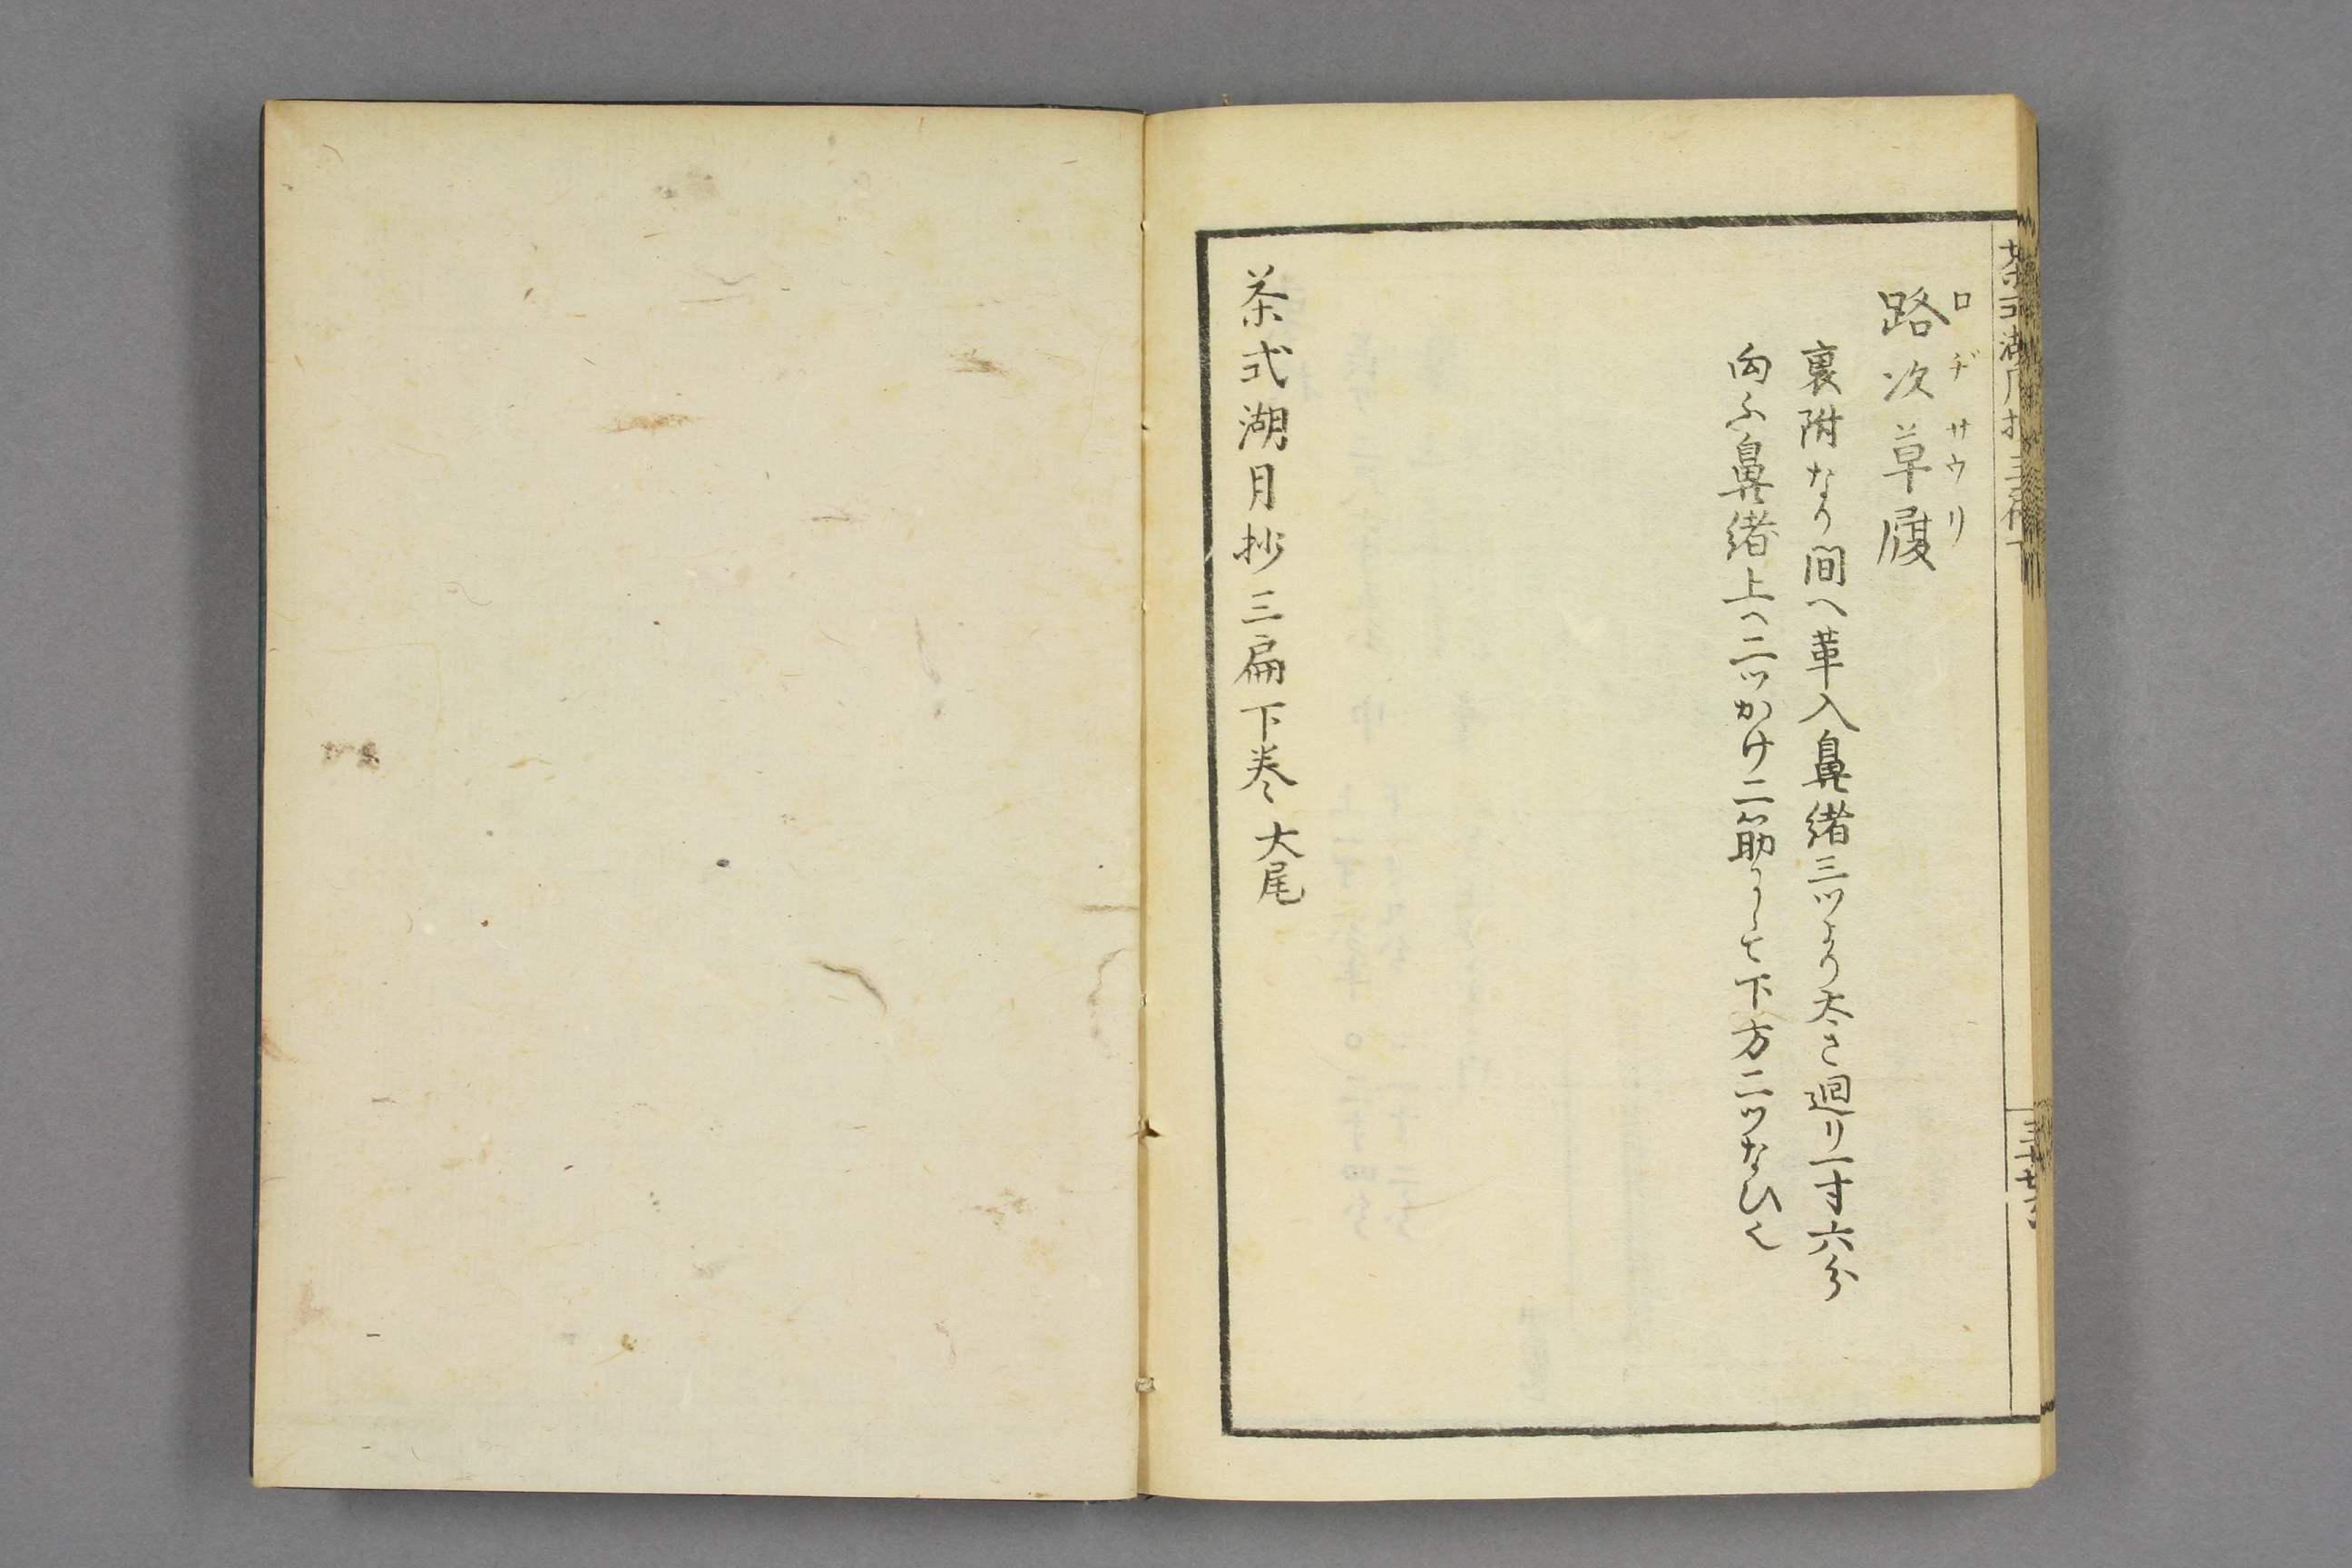 路次草履
ロヂサウリ
裏附なり間へ革入鼻緒三ツより太さ廻リ一寸六分
向ふ鼻緒上へ二ツかけ二筋にして下方二ツなひく
茶式湖月抄三扁下巻 大尾
茶式湖月抄三扁下